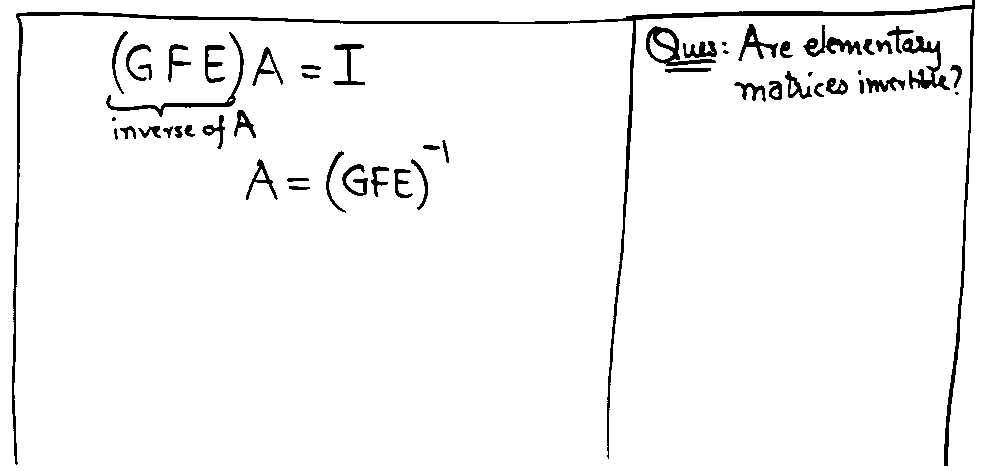 (GFE)A = I
inverse of A
A = (GFE)⁻¹
Ques: Are elementary
matrices invertible?